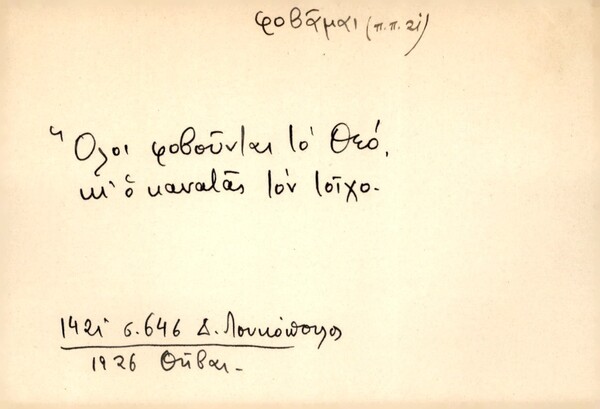 φοβᾶμαι (π.π. 2)
Ὅλοι φοβοῦνται τὸ Θεό,
κι' ὁ κανατᾶς τὸν τοῖχο.
142 σ. 646 Δ. Λουκόπουλος
1926 Θῆβαι.